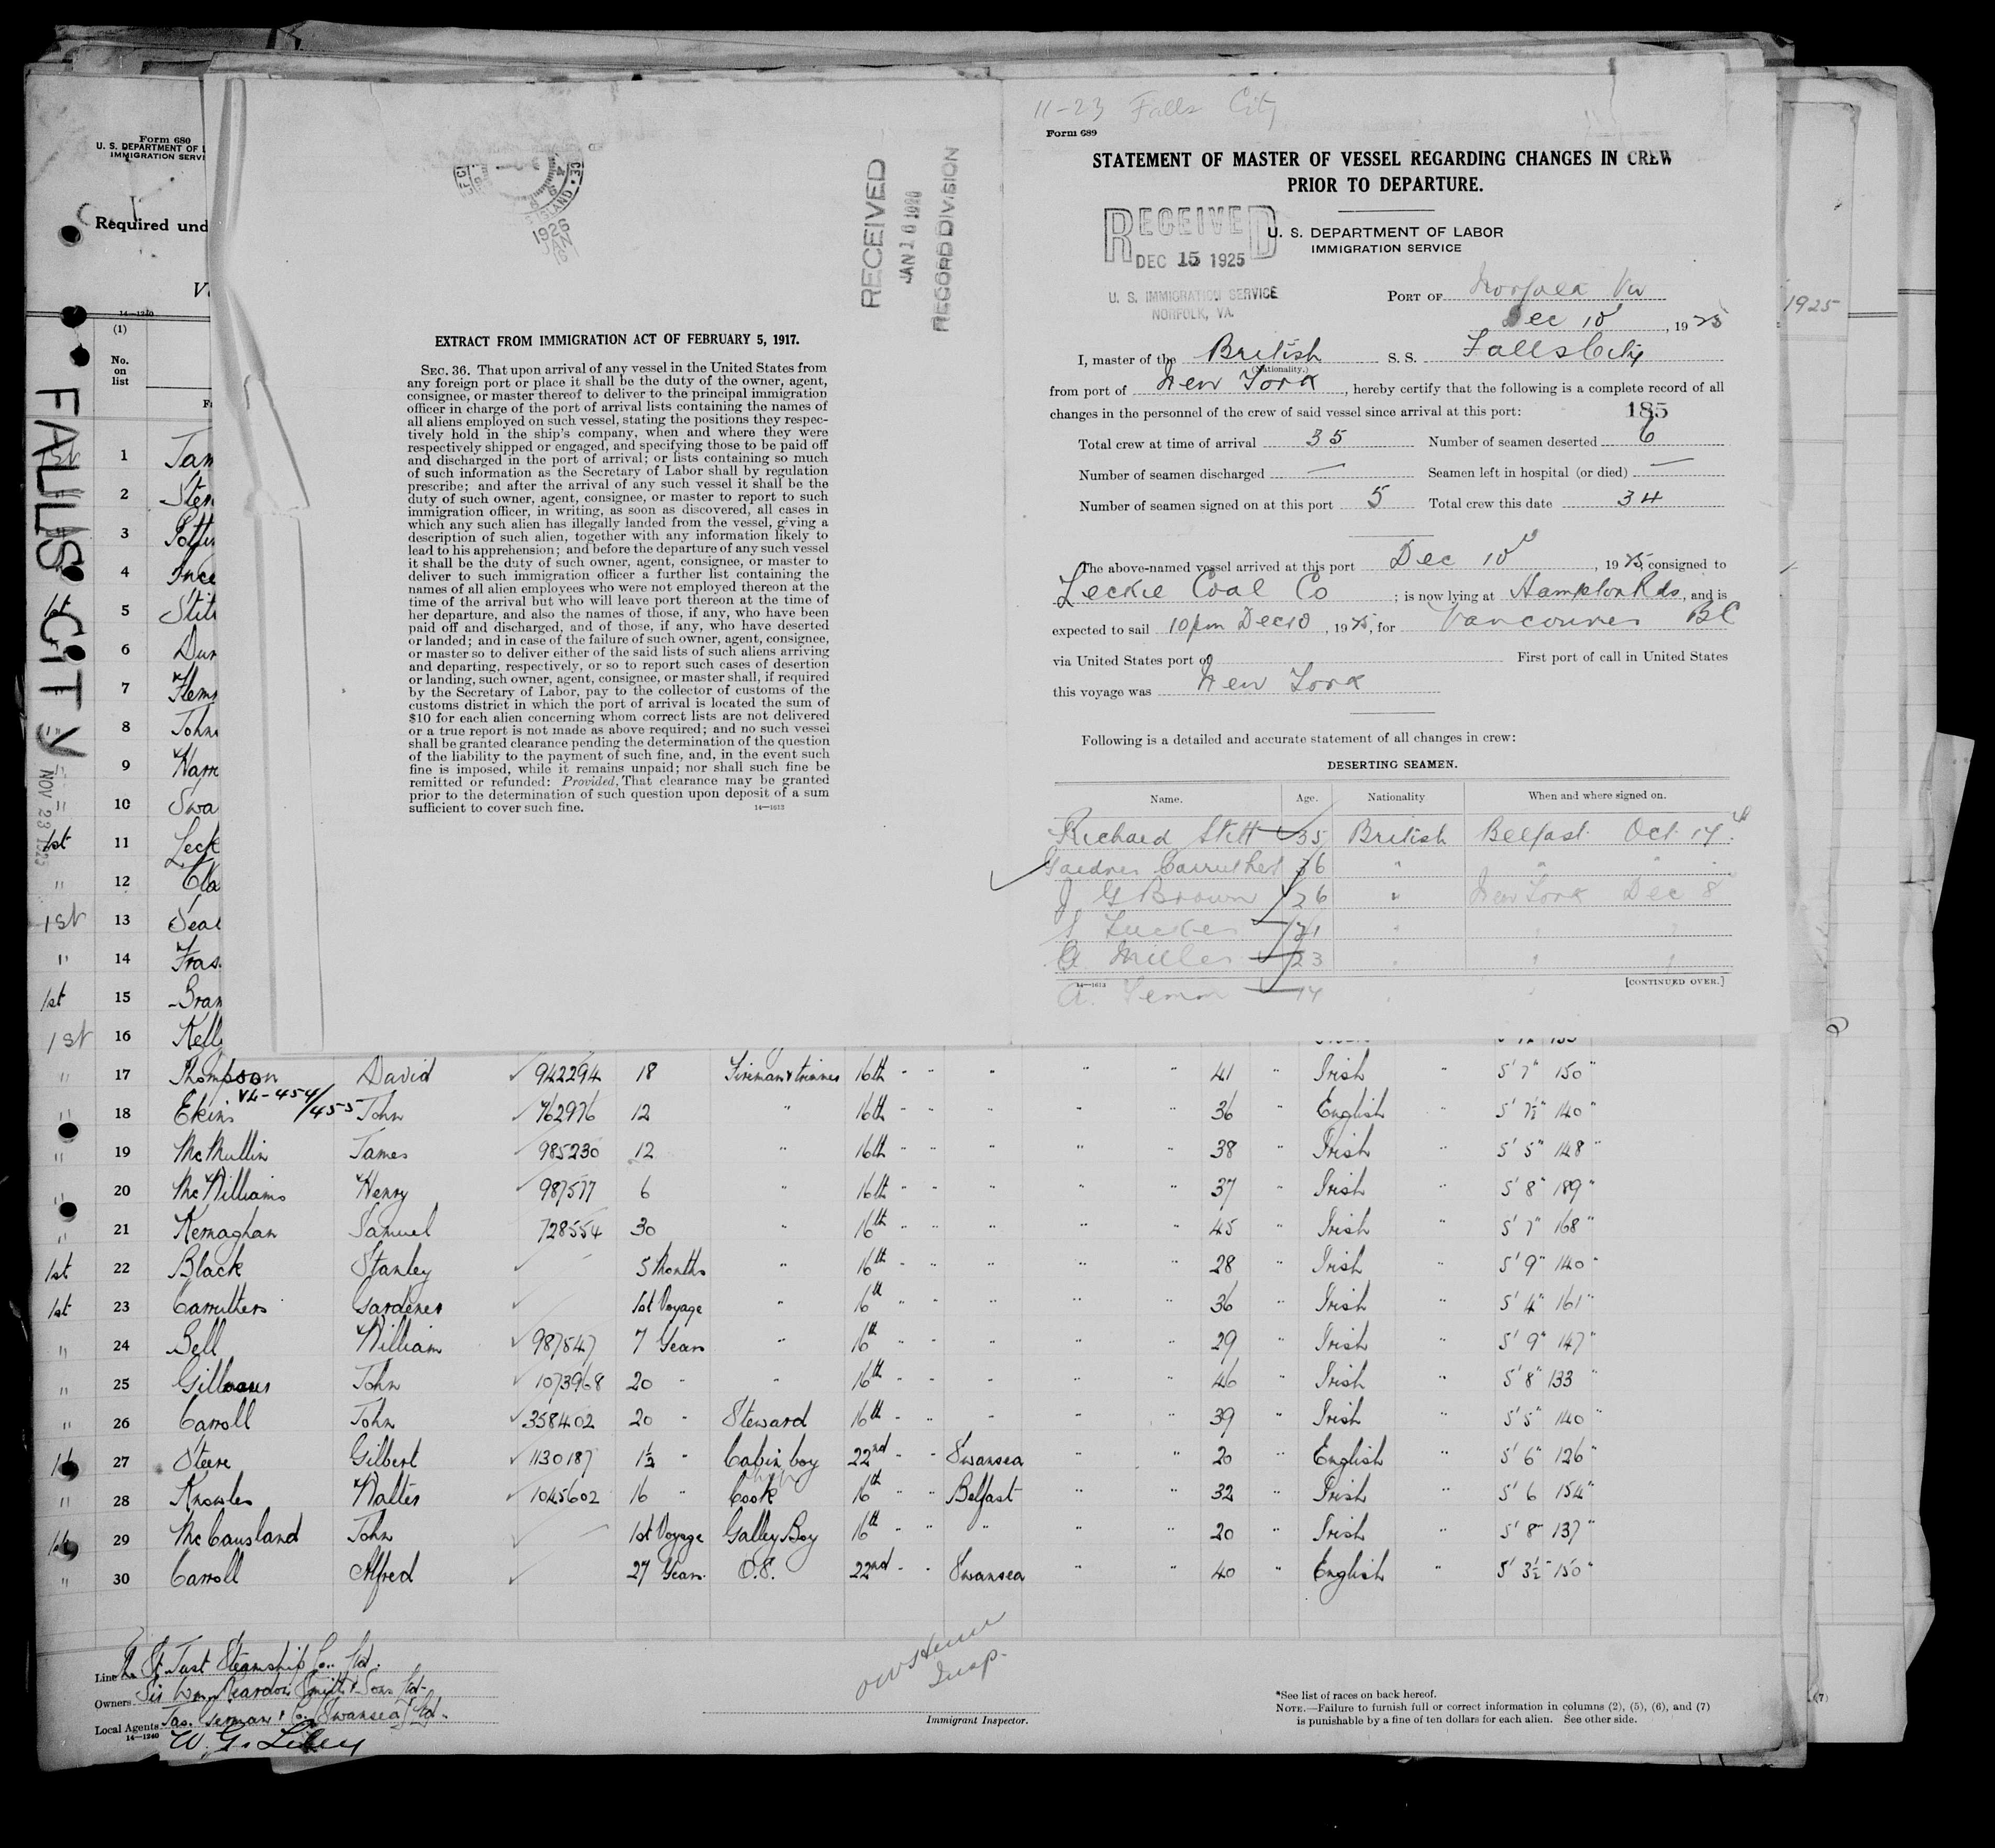 11-23 Falls City
Form 689
STATEMENT OF MASTER OF VESSEL REGARDING CHANGES IN CREW
PRIOR TO DEPARTURE.
RECEIVED
DEC 15 1925
U. S. IMMIGRATION SERVICE
NORFOLK, VA.
U. S. DEPARTMENT OF LABOR
IMMIGRATION SERVICE
PORT OF Norfolk Va
Dec 10, 1925
I, master of the British S. S. Falls City
(Nationality.)
from port of New York, hereby certify that the following is a complete record of all
changes in the personnel of the crew of said vessel since arrival at this port:
185
Total crew at time of arrival 35 Number of seamen deserted 6
Number of seamen discharged — Seamen left in hospital (or died) —
Number of seamen signed on at this port 5 Total crew this date 34
The above-named vessel arrived at this port Dec 10, 1925, consigned to
Leckie Coal Co; is now lying at Hampton Rds, and is
expected to sail 10pm Dec 10, 1925, for Vancouver BC
via United States port of First port of call in United States
this voyage was New York
Following is a detailed and accurate statement of all changes in crew:
DESERTING SEAMEN.
Name. Age. Nationality When and where signed on.
Richard Stitt 35 British Belfast Oct 17
Gardner Carruthers 36 " " "
J G Brown 26 " New York Dec 8
Tucker 21
Miller 23
14—1613 [CONTINUED OVER.]
A. Lemon
1926
JAN
RECEIVED
JAN 16 1926
RECORD DIVISION
EXTRACT FROM IMMIGRATION ACT OF FEBRUARY 5, 1917.
SEC. 36. That upon arrival of any vessel in the United States from
any foreign port or place it shall be the duty of the owner, agent,
consignee, or master thereof to deliver to the principal immigration
officer in charge of the port of arrival lists containing the names of
all aliens employed on such vessel, stating the positions they respec-
tively hold in the ship's company, when and where they were
respectively shipped or engaged, and specifying those to be paid off
and discharged in the port of arrival; or lists containing so much
of such information as the Secretary of Labor shall by regulation
prescribe; and after the arrival of any such vessel it shall be the
duty of such owner, agent, consignee, or master to report to such
immigration officer, in writing, as soon as discovered, all cases in
which any such alien has illegally landed from the vessel, giving a
description of such alien, together with any information likely to
lead to his apprehension; and before the departure of any such vessel
it shall be the duty of such owner, agent, consignee, or master to
deliver to such immigration officer a further list containing the
names of all alien employees who were not employed thereon at the
time of the arrival but who will leave port thereon at the time of
her departure, and also the names of those, if any, who have been
paid off and discharged, and of those, if any, who have deserted
or landed; and in case of the failure of such owner, agent, consignee,
or master so to deliver either of the said lists of such aliens arriving
and departing, respectively, or so to report such cases of desertion
or landing, such owner, agent, consignee, or master shall, if required
by the Secretary of Labor, pay to the collector of customs of the
customs district in which the port of arrival is located the sum of
$10 for each alien concerning whom correct lists are not delivered
or a true report is not made as above required; and no such vessel
shall be granted clearance pending the determination of the question
of the liability to the payment of such fine, and, in the event such
fine is imposed, while it remains unpaid; nor shall such fine be
remitted or refunded: Provided, That clearance may be granted
prior to the determination of such question upon deposit of a sum
sufficient to cover such fine.
14—1613
Form 680
U. S. DEPARTMENT OF L
IMMIGRATION SERVI
Required und
14—1240
(1)
No.
on
list
FALLS CITY
NOV 23 1925
1925
1st 1 Jam
2 Ster
3 Pottin
4 Ince
1st 5 Stit
6 Dun
7 Flem
" 8 John
" 9 Harr
" 10 Swa
1st 11 Leck
" 12 Cla
1st 13 Seal
" 14 Fras
1st 15 Bran
1st 16 Kell
" 17 Thompson David 942294 18 Fireman & trimmer 16th " " " " " 41 " Irish " 5' 7" 150 "
VL-454/455
" 18 Ekins John 762976 12 " 16th " " " " " 36 " English " 5' 7½" 140 "
" 19 McMullin James 985230 12 " 16th " " " " " 38 " Irish " 5' 5" 148 "
" 20 McWilliams Henry 987577 6 " 16th " " " " " 37 " Irish " 5' 8" 189 "
" 21 Kernaghan Samuel 728554 30 " 16th " " " " " 45 " Irish " 5' 7" 168 "
1st 22 Black Stanley 5 Months " 16th " " " " " 28 " Irish " 5' 9" 140 "
1st 23 Carruthers Gardener 1st Voyage " 16th " " " " " 36 " Irish " 5' 4" 161 "
" 24 Bell William 987547 7 Years " 16th " " " " " 29 " Irish " 5' 9" 147 "
" 25 John 1073968 20 " " 16th " " " " " 46 " Irish " 5' 8" 133 "
" 26 Carroll John 358402 20 " Steward 16th " " " " " 39 " Irish " 5' 5" 140 "
27 Steere Gilbert 1130187 1½ " Cabin boy 22nd " " Swansea " " 20 " English " 5' 6" 126 "
" 28 Knowles Walter 1045602 16 " Cook 16th " " Belfast " " 32 " Irish " 5' 6 154 "
29 McCausland John 1st Voyage Galley Boy 16th " " " " " 20 " Irish " 5' 8" 137 "
" 30 Carroll Alfred 27 Years O.S. 22nd " " Swansea " " 40 " English " 5' 3½" 150 "
Line St. Just Steamship Co. Ltd.
Owners Sir Wm Reardon Smith & Sons Ltd.
Local Agents Jas. & Co (Swansea) Ltd.
14—1240
Insp.
Immigrant Inspector.
*See list of races on back hereof.
NOTE.—Failure to furnish full or correct information in columns (2), (5), (6), and (7)
is punishable by a fine of ten dollars for each alien. See other side.
(7)